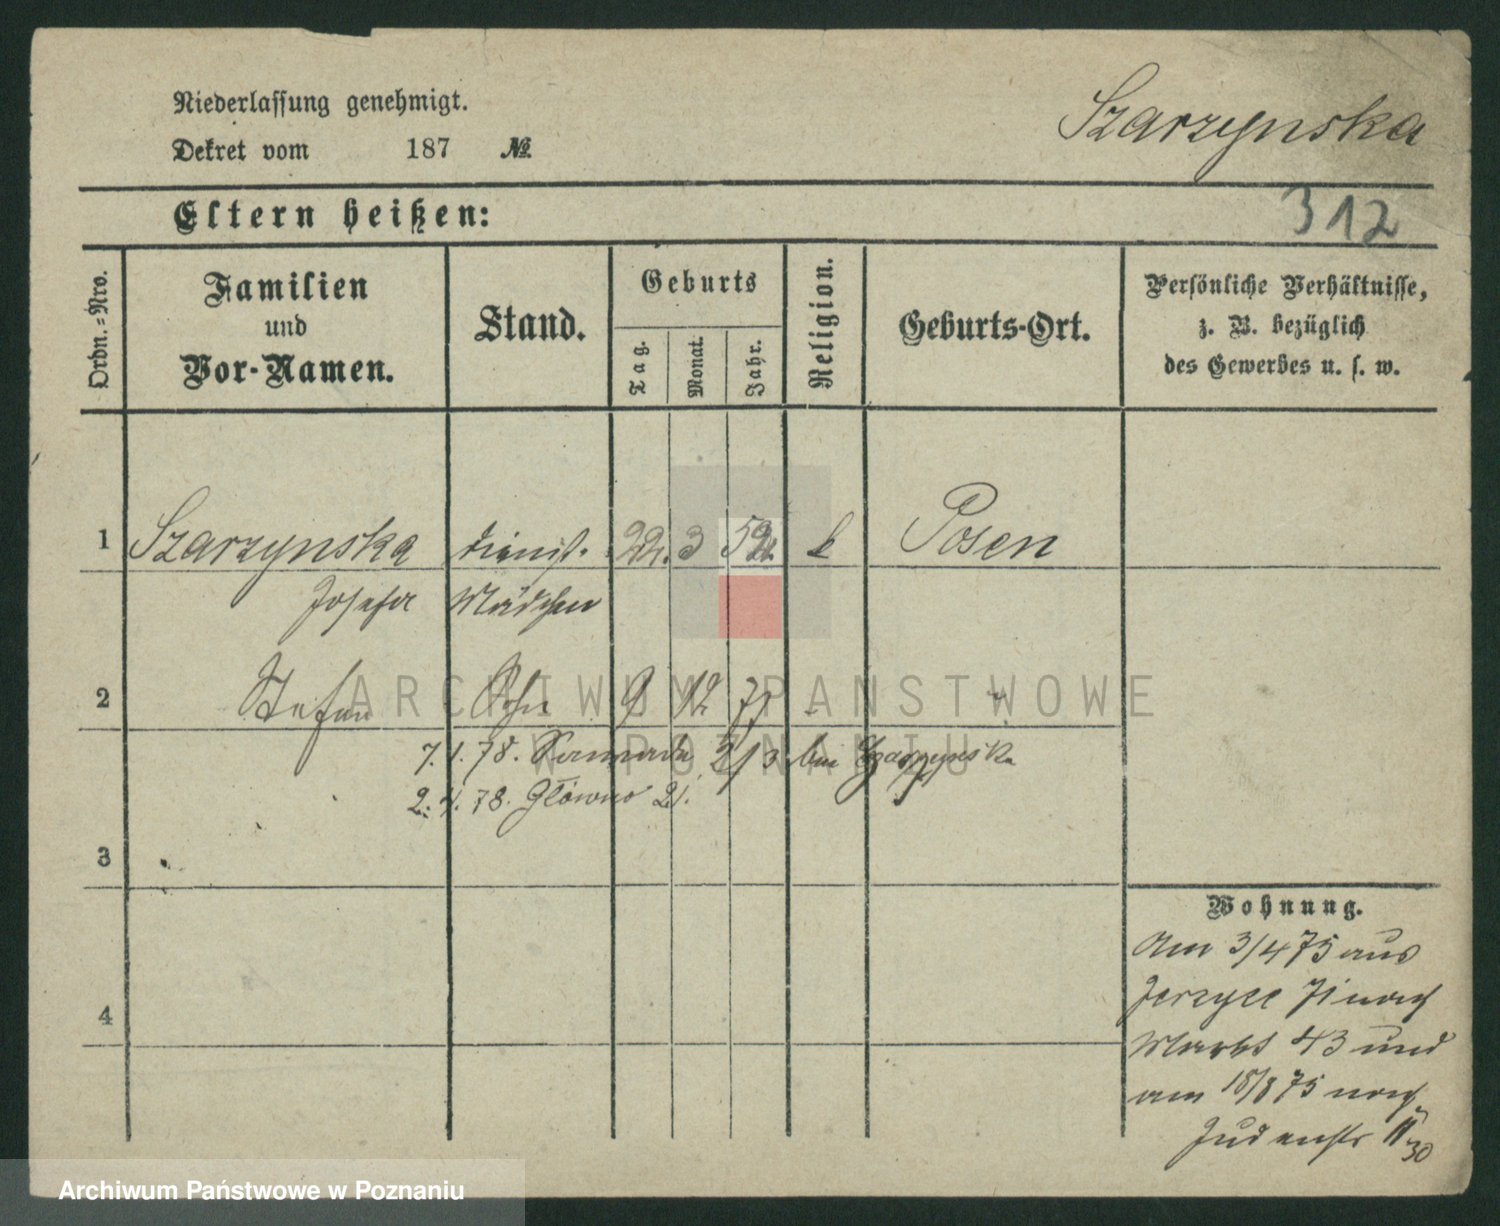 Niederlassung genehmigt.
Szarzynska
Dekret vom 187 №
Eltern heißen:
312
Ordn.=Nro.
Familien
und
Vor-Namen.
Stand.
Geburts
Tag.
Monat.
Jahr.
Religion.
Geburts-Ort.
Persönliche Verhältnisse,
z. B. bezüglich
des Gewerbes u. s. w.
1 Szarzynska dienst. 22. 3 52. k Posen
Josefa Mädchen
2 Stefan Sohn 9 12 77
7. 1. 78. 2/3 bei Szarzynska
2. 4. 78. Główno 21.
3
4
Wohnung.
Am 3/4 75 aus
Jerzyce 71 nach
Markt 43 und
am 18/8 75 nach
Judenstr 11 30
ARCHIWUM PAŃSTWOWE
W POZNANIU
Archiwum Państwowe w Poznaniu